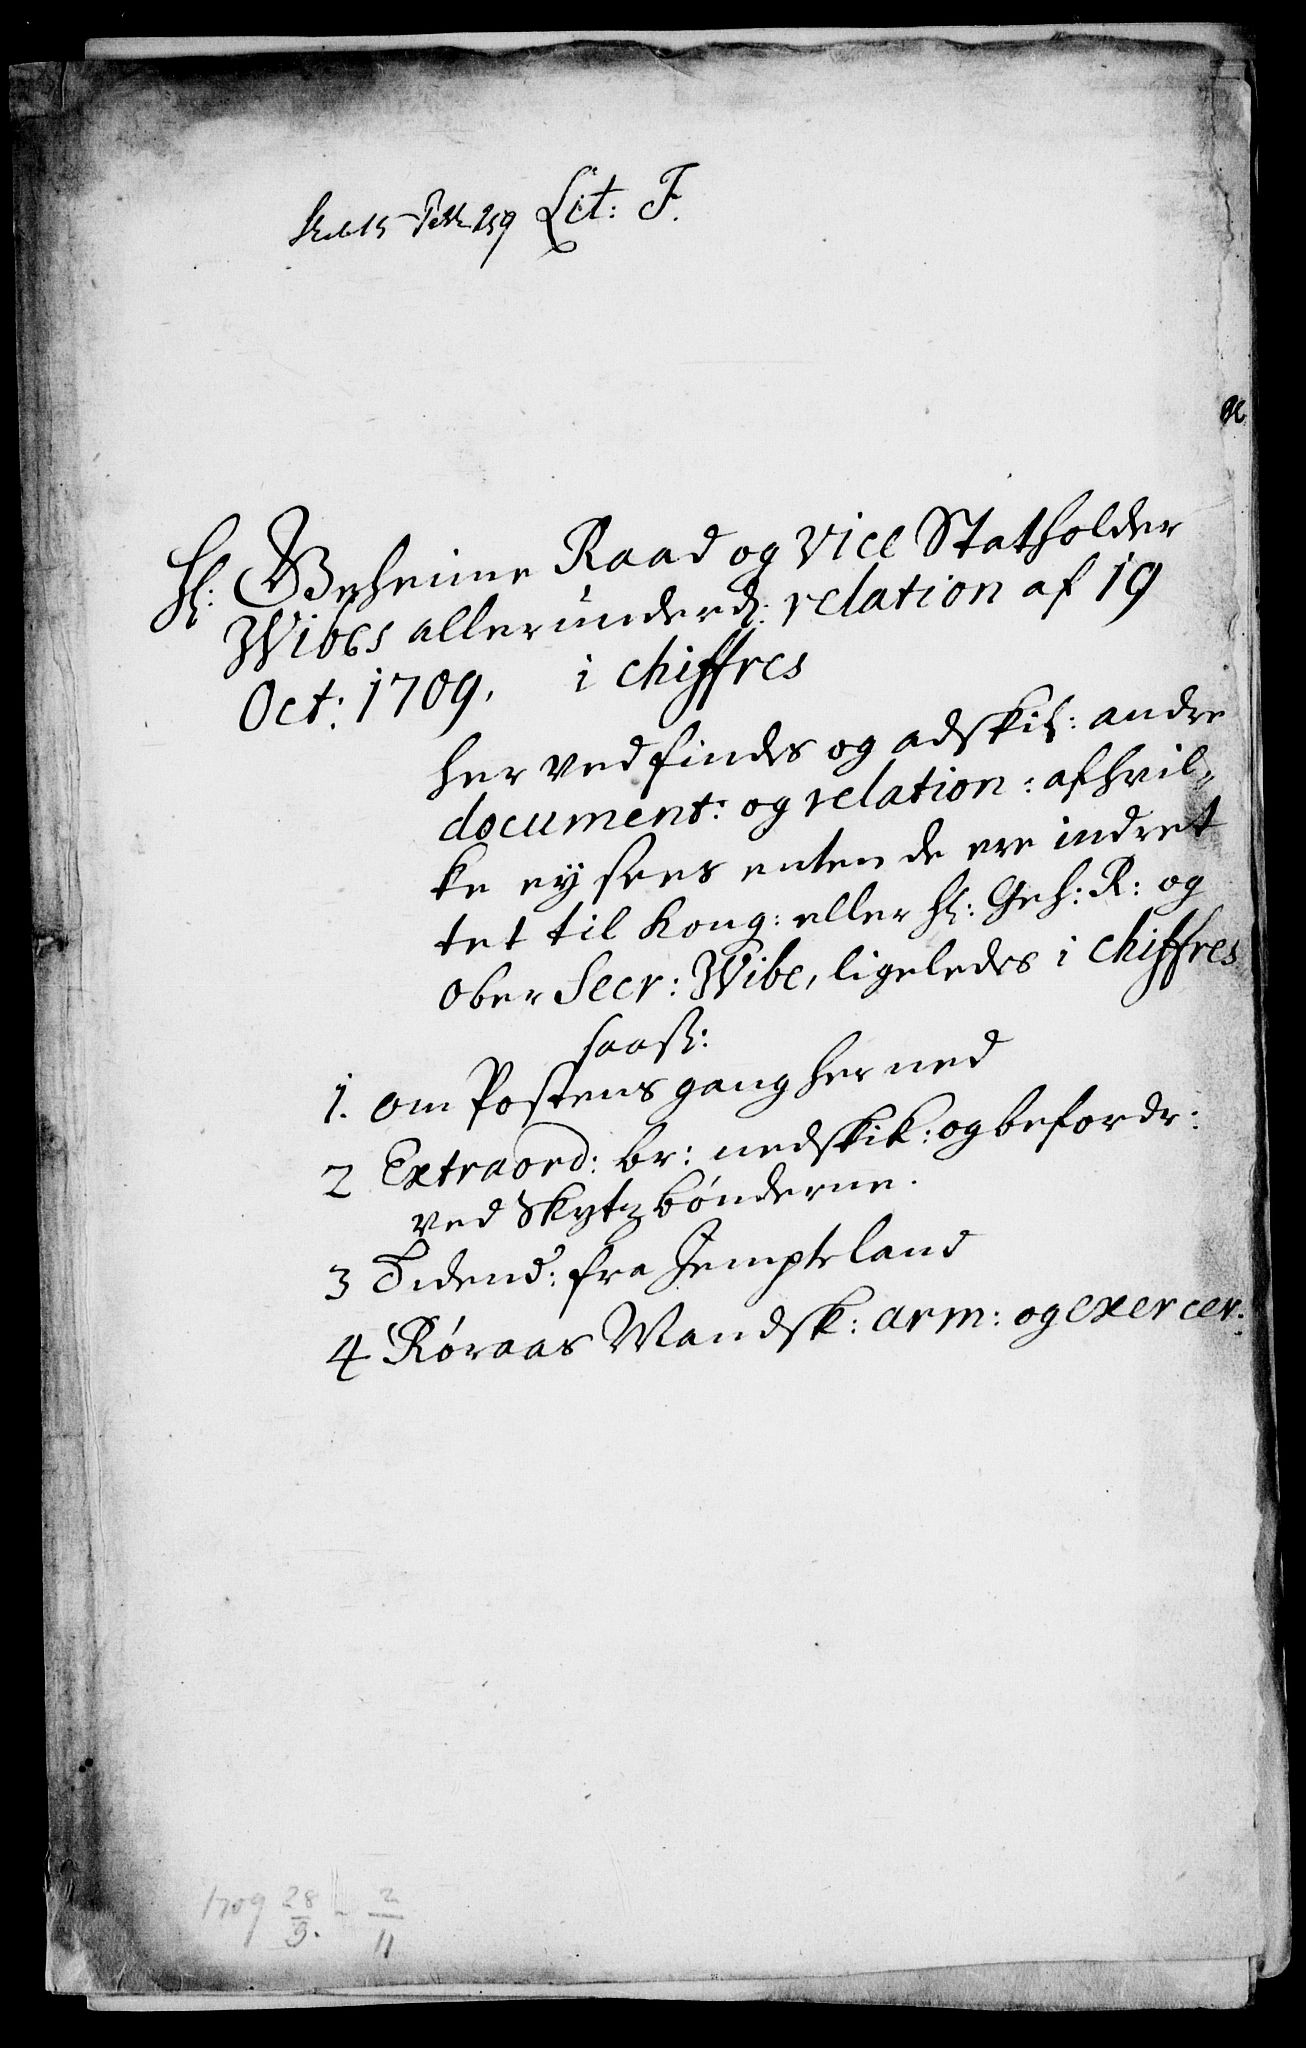 Lit: F.
Hl: Geheime Raad og Vice Statholder
Wibes allerunderd: relation af 19
Oct: 1709. i chiffres
her ved findes og adskil: andre
document: og relation: af hvil-
ke ey sees enten de ere indret
tet til Kong: eller Hl: Geh: R: og
ober Secr: Wibe, ligeledes i chiffres
saasl:
1. om Postens gang her ned
2 Extraord: br: nedskik: og befordr:
ved Skytzbønderne.
3 Tidend: fra Jempteland
4 Røraas Mandsk: arm: og exercer:
1709 28/3. - 2/11